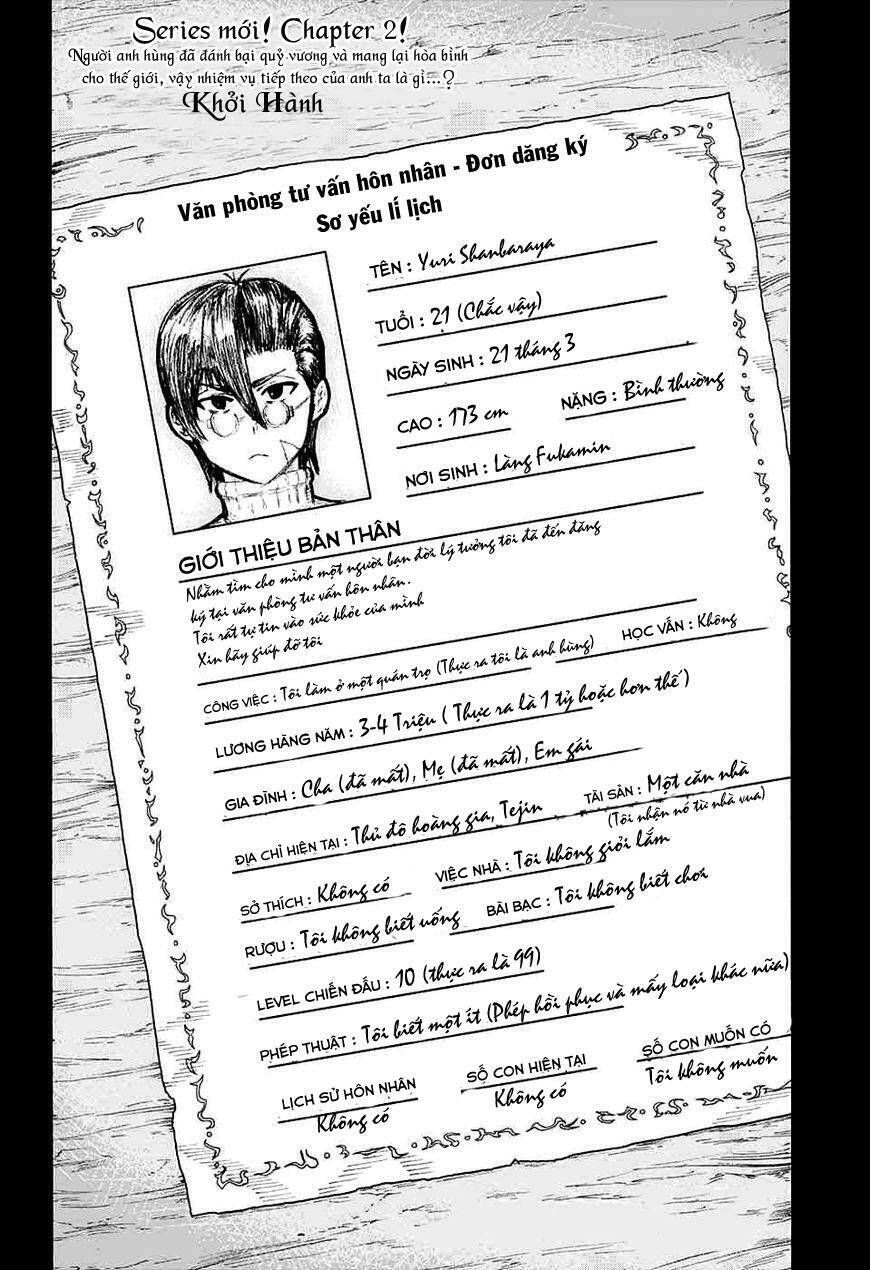 Series mới! Chapter 2!
Người anh hùng đã đánh bại quỷ vương và mang lại hòa bình
cho thế giới, vậy nhiệm vụ tiếp theo của anh ta là gì...?
Khởi Hành
Văn phòng tư vấn hôn nhân - Đơn đăng ký
Sơ yếu lí lịch
TÊN : Yuri Shanbaraya
TUỔI : 21 (Chắc vậy)
NGÀY SINH : 21 tháng 3
CAO : 173 cm NẶNG : Bình thường
NƠI SINH : Làng Fukamin
GIỚI THIỆU BẢN THÂN
Nhằm tìm cho mình một người bạn đời lý tưởng tôi đã đến đăng
ký tại văn phòng tư vấn hôn nhân.
Tôi rất tự tin vào sức khỏe của mình
Xin hãy giúp đỡ tôi
CÔNG VIỆC : Tôi làm ở một quán trọ (Thực ra tôi là anh hùng) HỌC VẤN : Không
LƯƠNG HÀNG NĂM : 3-4 Triệu ( Thực ra là 1 tỷ hoặc hơn thế )
GIA ĐÌNH : Cha (đã mất), Mẹ (đã mất), Em gái
ĐỊA CHỈ HIỆN TẠI : Thủ đô hoàng gia, Tejin TÀI SẢN : Một căn nhà
(Tôi nhận nó từ nhà vua)
SỞ THÍCH : Không có VIỆC NHÀ : Tôi không giỏi lắm
RƯỢU : Tôi không biết uống BÀI BẠC : Tôi không biết chơi
LEVEL CHIẾN ĐẤU : 10 (thực ra là 99)
PHÉP THUẬT : Tôi biết một ít (Phép hồi phục và mấy loại khác nữa)
LỊCH SỬ HÔN NHÂN SỐ CON HIỆN TẠI SỐ CON MUỐN CÓ
Không có Không có Tôi không muốn